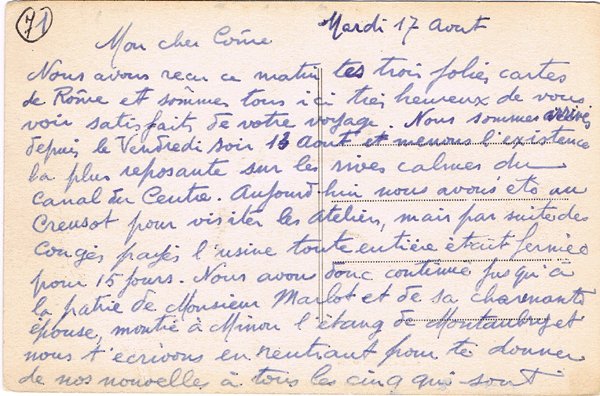 71
Mardi 17 Aout
Mon cher Côme
Nous avons reçu ce matin tes trois jolies cartes
de Rôme et sommes tous ici très heureux de vous
voir satisfaits de votre voyage. Nous sommes arrivés
depuis le Vendredi soir 13 Aout et menons l'existence
la plus reposante sur les rives calmes du
Canal du Centre. Aujourd'hui nous avons été au
Creusot pour visiter les Ateliers, mais par suite des
congés payés l'usine toute entière était fermée
pour 15 jours. Nous avons donc continué jusqu'à
la patrie de Monsieur Marlot et de sa charmante
épouse, montré à Minou l'étang de Montaubry et
nous t'écrivons en rentrant pour te donner
de nos nouvelles à tous les cinq qui sont